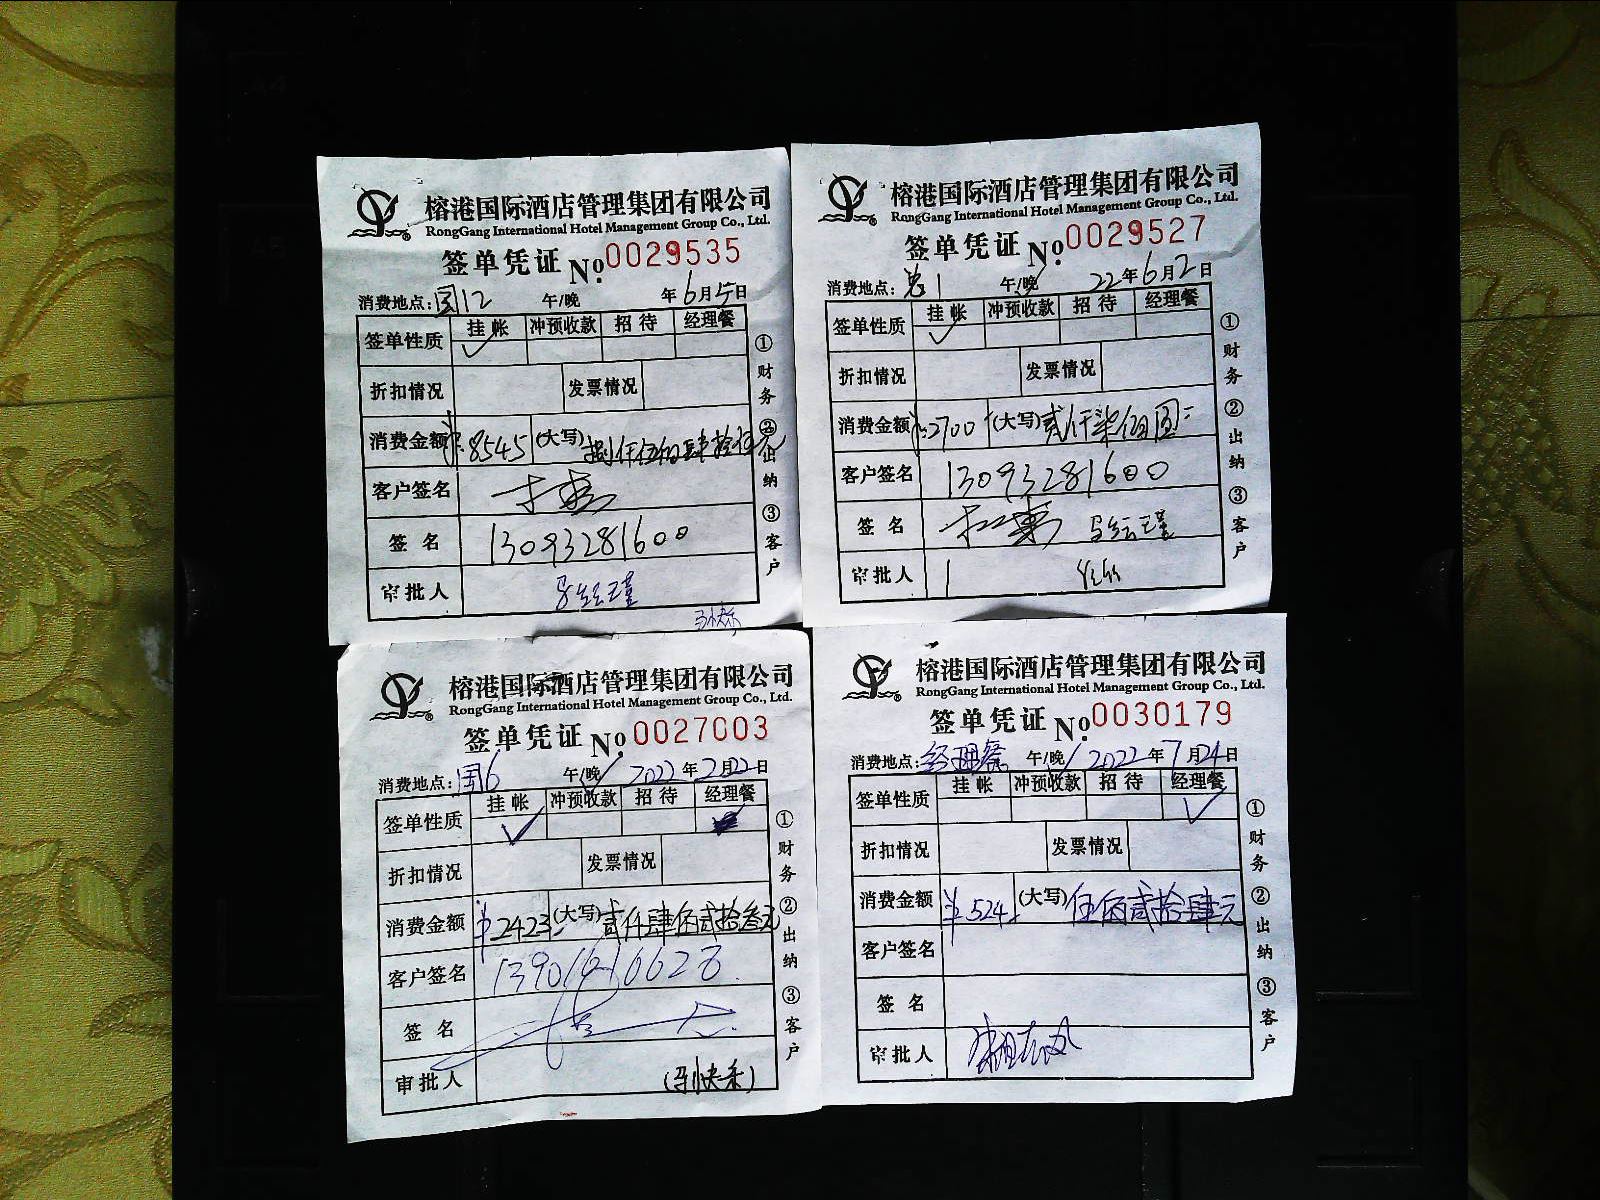 榕港国际酒店管理集团有限公司
RongGang International Hotel Management Group Co., Ltd.
签单凭证 No. 0029535
消费地点: 国12 午/晚 年6月5日
签单性质 挂帐 冲预收款 招待 经理餐
✓
折扣情况 发票情况
消费金额 ¥:8545 (大写) 捌仟伍佰肆拾伍元
客户签名
签名 13093281600
审批人
①财务 ②出纳 ③客户
榕港国际酒店管理集团有限公司
RongGang International Hotel Management Group Co., Ltd.
签单凭证 No. 0029527
消费地点: 总1 午/晚 22年6月2日
签单性质 挂帐 冲预收款 招待 经理餐
✓
折扣情况 发票情况
消费金额 ¥:2700 (大写) 贰仟柒佰圆
客户签名 13093281600
签名
审批人
①财务 ②出纳 ③客户
榕港国际酒店管理集团有限公司
RongGang International Hotel Management Group Co., Ltd.
签单凭证 No. 0027003
消费地点: 国6 午/晚 2022年2月22日
签单性质 挂帐 冲预收款 招待 经理餐
✓
折扣情况 发票情况
消费金额 ¥2423 (大写) 贰仟肆佰贰拾叁元
客户签名
签名
审批人
①财务 ②出纳 ③客户
榕港国际酒店管理集团有限公司
RongGang International Hotel Management Group Co., Ltd.
签单凭证 No. 0030179
消费地点: 经理餐 午/晚 2022年7月24日
签单性质 挂帐 冲预收款 招待 经理餐
✓
折扣情况 发票情况
消费金额 ¥524. (大写) 伍佰贰拾肆元
客户签名
签名
审批人
①财务 ②出纳 ③客户